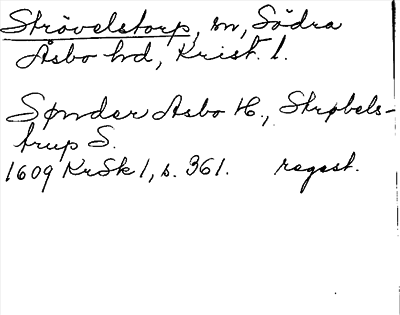 Strövelstorp, sn, Södra
Åsbo hd, Krist. l.
Sønder Asbo H., Strøbels-
trup S.
1609 KrSk 1, s. 361. regest.